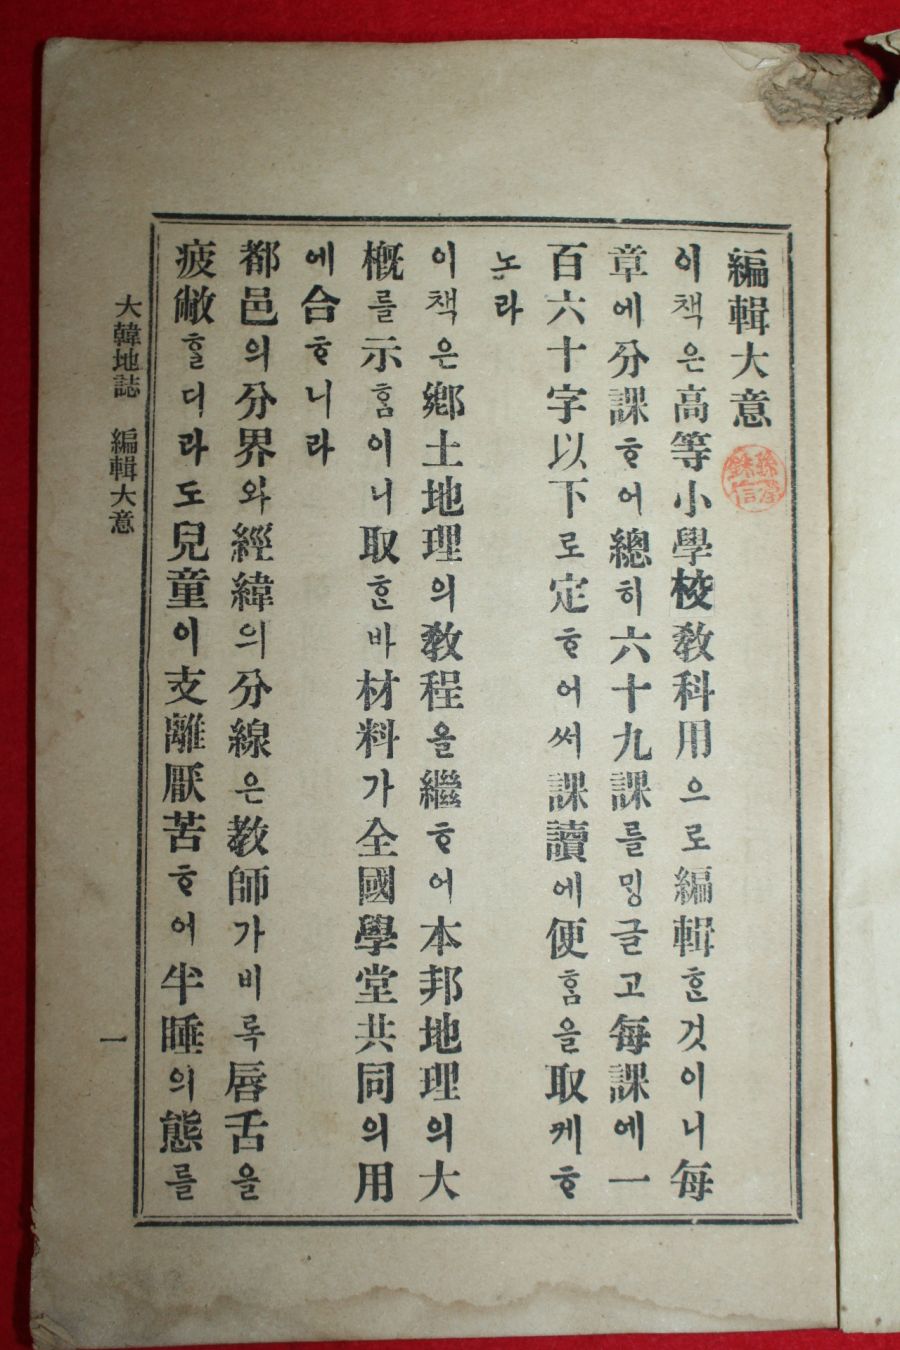 編輯大意
이책은高等小學校敎科用으로編輯ᄒᆞᆫ것이니每
章에分課ᄒᆞ어總히六十九課를ᄆᆡᆼ글고每課에一
百六十字以下로定ᄒᆞ어써課讀에便ᄒᆞᆷ을取케ᄒᆞ
노라
이책은鄕土地理의敎程을繼ᄒᆞ어本邦地理의大
槪를示ᄒᆞᆷ이니取ᄒᆞᆫ바材料가全國學堂共同의用
에合ᄒᆞ니라
都邑의分界와經緯의分線은敎師가비록唇舌을
疲敝ᄒᆞᆯ디라도兒童이支離厭苦ᄒᆞ어半睡의態를
大韓地誌 編輯大意
一